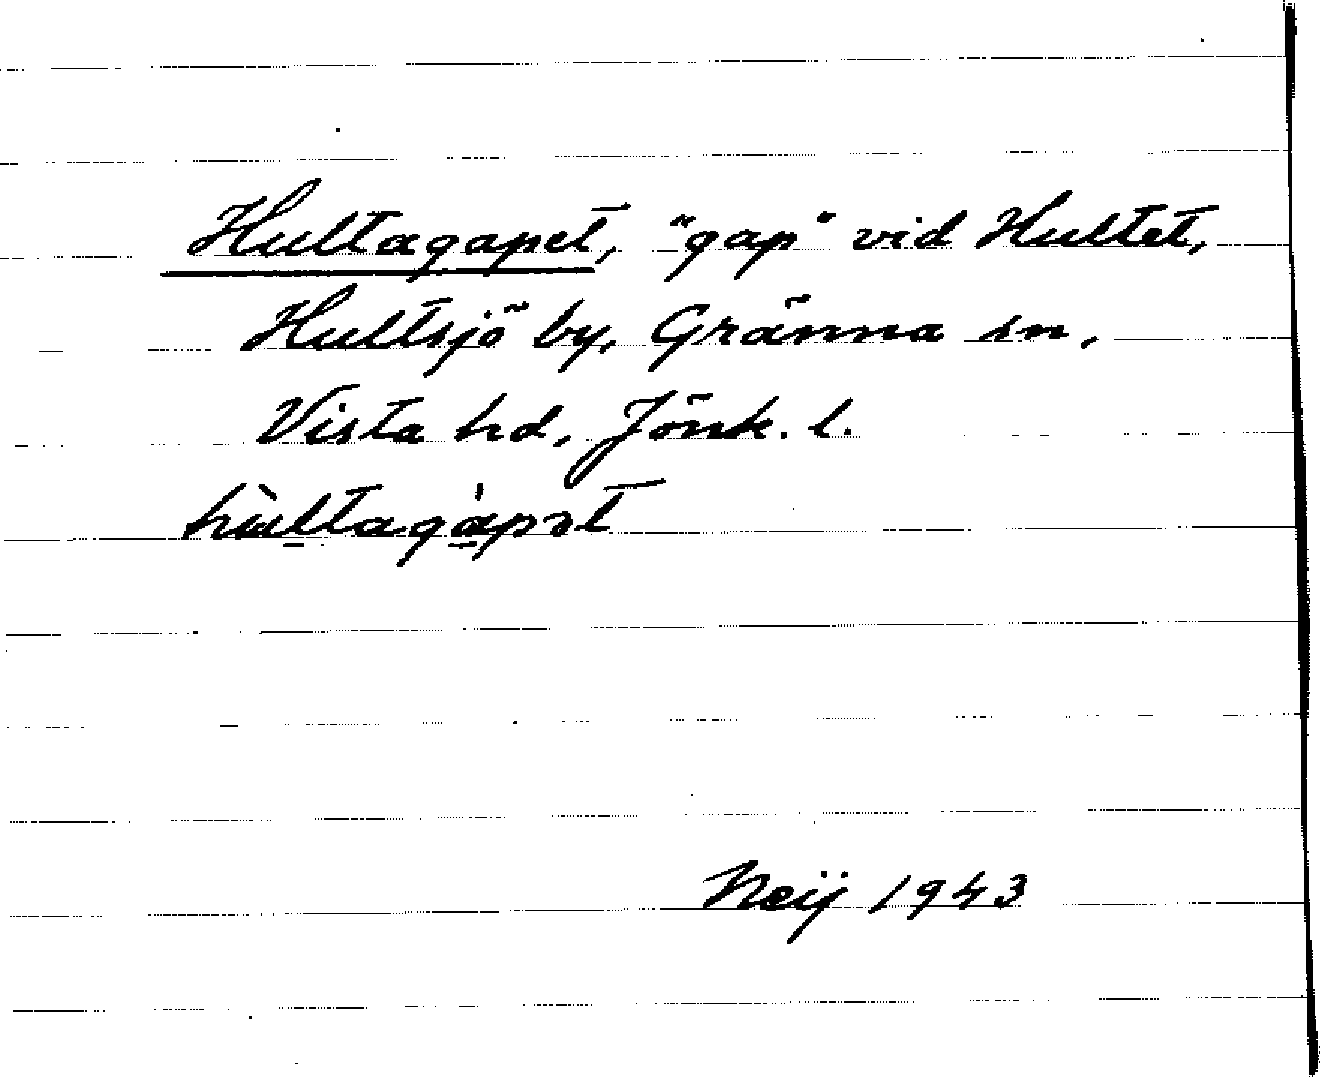 Hultagapet, "gap" vid Hultet,
Hultsjö by, Gränna sn,
Vista hd, Jönk. l.
hùltagàpət
Neij 1943